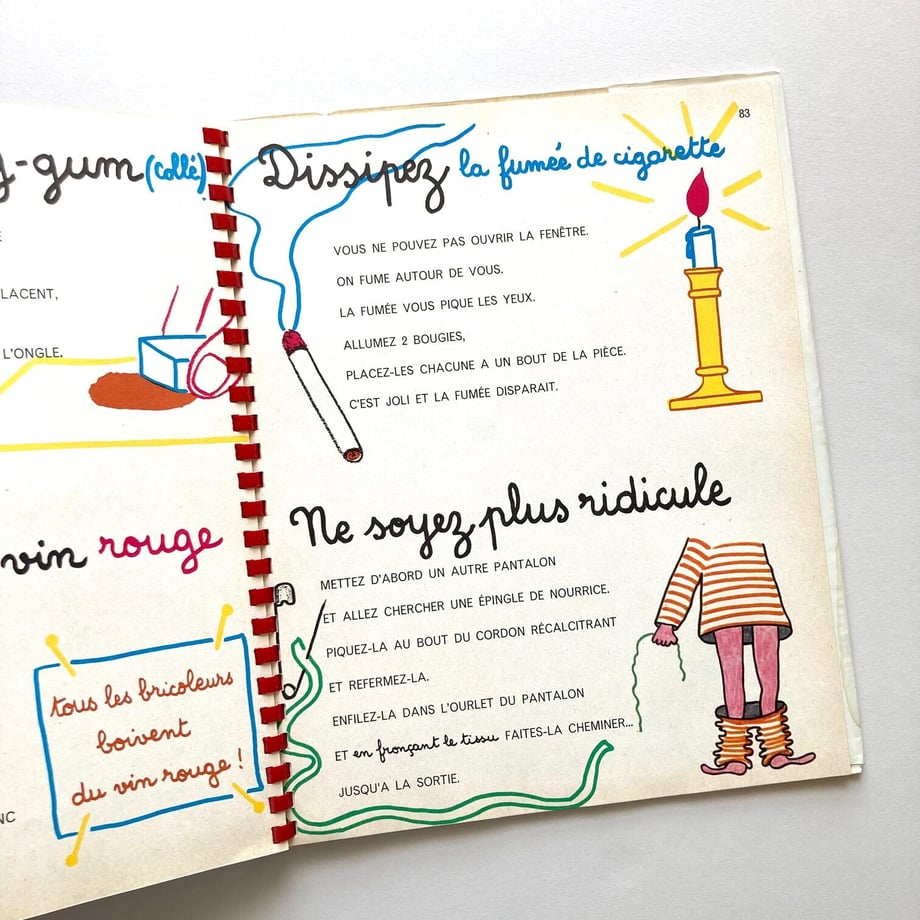 g-gum (collé)
LACENT,
L'ONGLE.
vin rouge
tous les bricoleurs
boivent
du vin rouge !
NC
83
Dissipez la fumée de cigarette
VOUS NE POUVEZ PAS OUVRIR LA FENÊTRE.
ON FUME AUTOUR DE VOUS.
LA FUMÉE VOUS PIQUE LES YEUX.
ALLUMEZ 2 BOUGIES,
PLACEZ-LES CHACUNE A UN BOUT DE LA PIÈCE.
C'EST JOLI ET LA FUMÉE DISPARAIT.
Ne soyez plus ridicule
METTEZ D'ABORD UN AUTRE PANTALON
ET ALLEZ CHERCHER UNE ÉPINGLE DE NOURRICE.
PIQUEZ-LA AU BOUT DU CORDON RÉCALCITRANT
ET REFERMEZ-LA.
ENFILEZ-LA DANS L'OURLET DU PANTALON
ET en fronçant le tissu FAITES-LA CHEMINER...
JUSQU'A LA SORTIE.